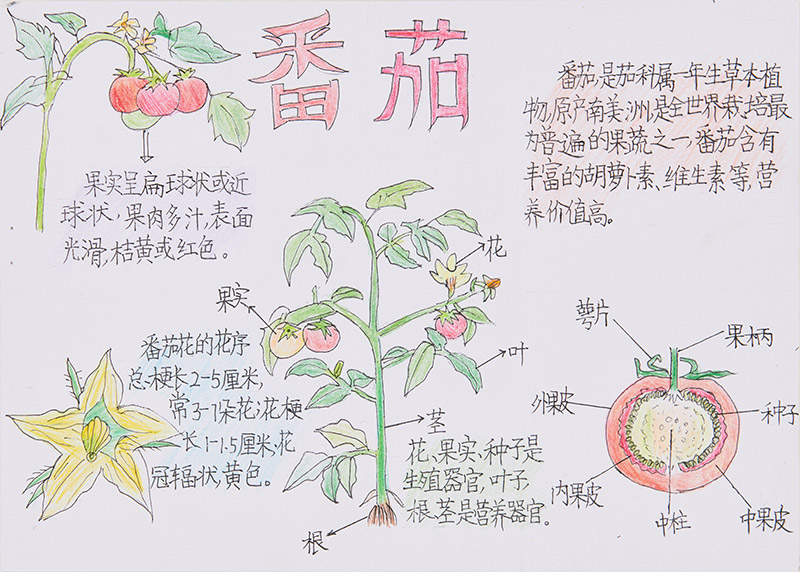 番茄
番茄,是茄科属一年生草本植
物,原产南美洲,是全世界栽培最
为普遍的果蔬之一,番茄含有
丰富的胡萝卜素、维生素等,营
养价值高。
果实呈扁球状或近
球状，果肉多汁,表面
光滑,桔黄或红色。
番茄花的花序
总梗长2-5厘米,
常3-1朵花;花梗
长1-1.5厘米;花
冠辐状,黄色。
果实
花
叶
茎
根
花、果实、种子是
生殖器官,叶子,
根、茎是营养器官。
萼片
果柄
外果皮
种子
内果皮
中柱
中果皮